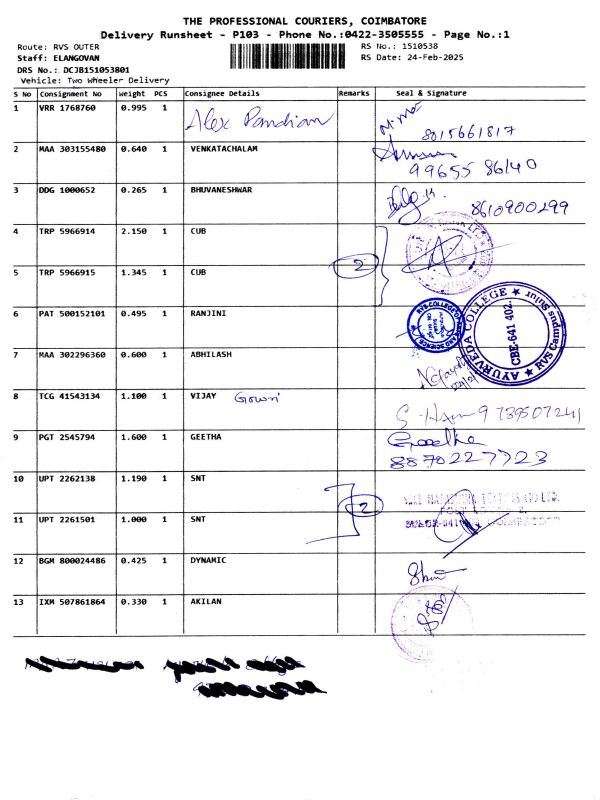 THE PROFESSIONAL COURIERS, COIMBATORE
Delivery Runsheet - P103 - Phone No.:0422-3505555 - Page No.:1
Route: RVS OUTER RS No.: 1510538
Staff: ELANGOVAN RS Date: 24-Feb-2025
DRS No.: DCJB151053801
Vehicle: Two Wheeler Delivery
S No Consignment No Weight PCS Consignee Details Remarks Seal & Signature
1 VRR 1768760 0.995 1 Alex Pandian
8015661817
2 MAA 303155480 0.640 1 VENKATACHALAM
99655 86140
3 DDG 1000652 0.265 1 BHUVANESHWAR
8610900299
4 TRP 5966914 2.150 1 CUB
2
5 TRP 5966915 1.345 1 CUB
6 PAT 500152101 0.495 1 RANJINI
AYURVEDA COLLEGE ★ RVS Campus Sulur ★
CBE-641 402.
7 MAA 302296360 0.600 1 ABHILASH
8 TCG 41543134 1.100 1 VIJAY Gowri
9789507241
9 PGT 2545794 1.600 1 GEETHA Geetha
8870227723
10 UPT 2262138 1.190 1 SNT
2
11 UPT 2261501 1.000 1 SNT
12 BGM 800024486 0.425 1 DYNAMIC
13 IXM 507861864 0.330 1 AKILAN